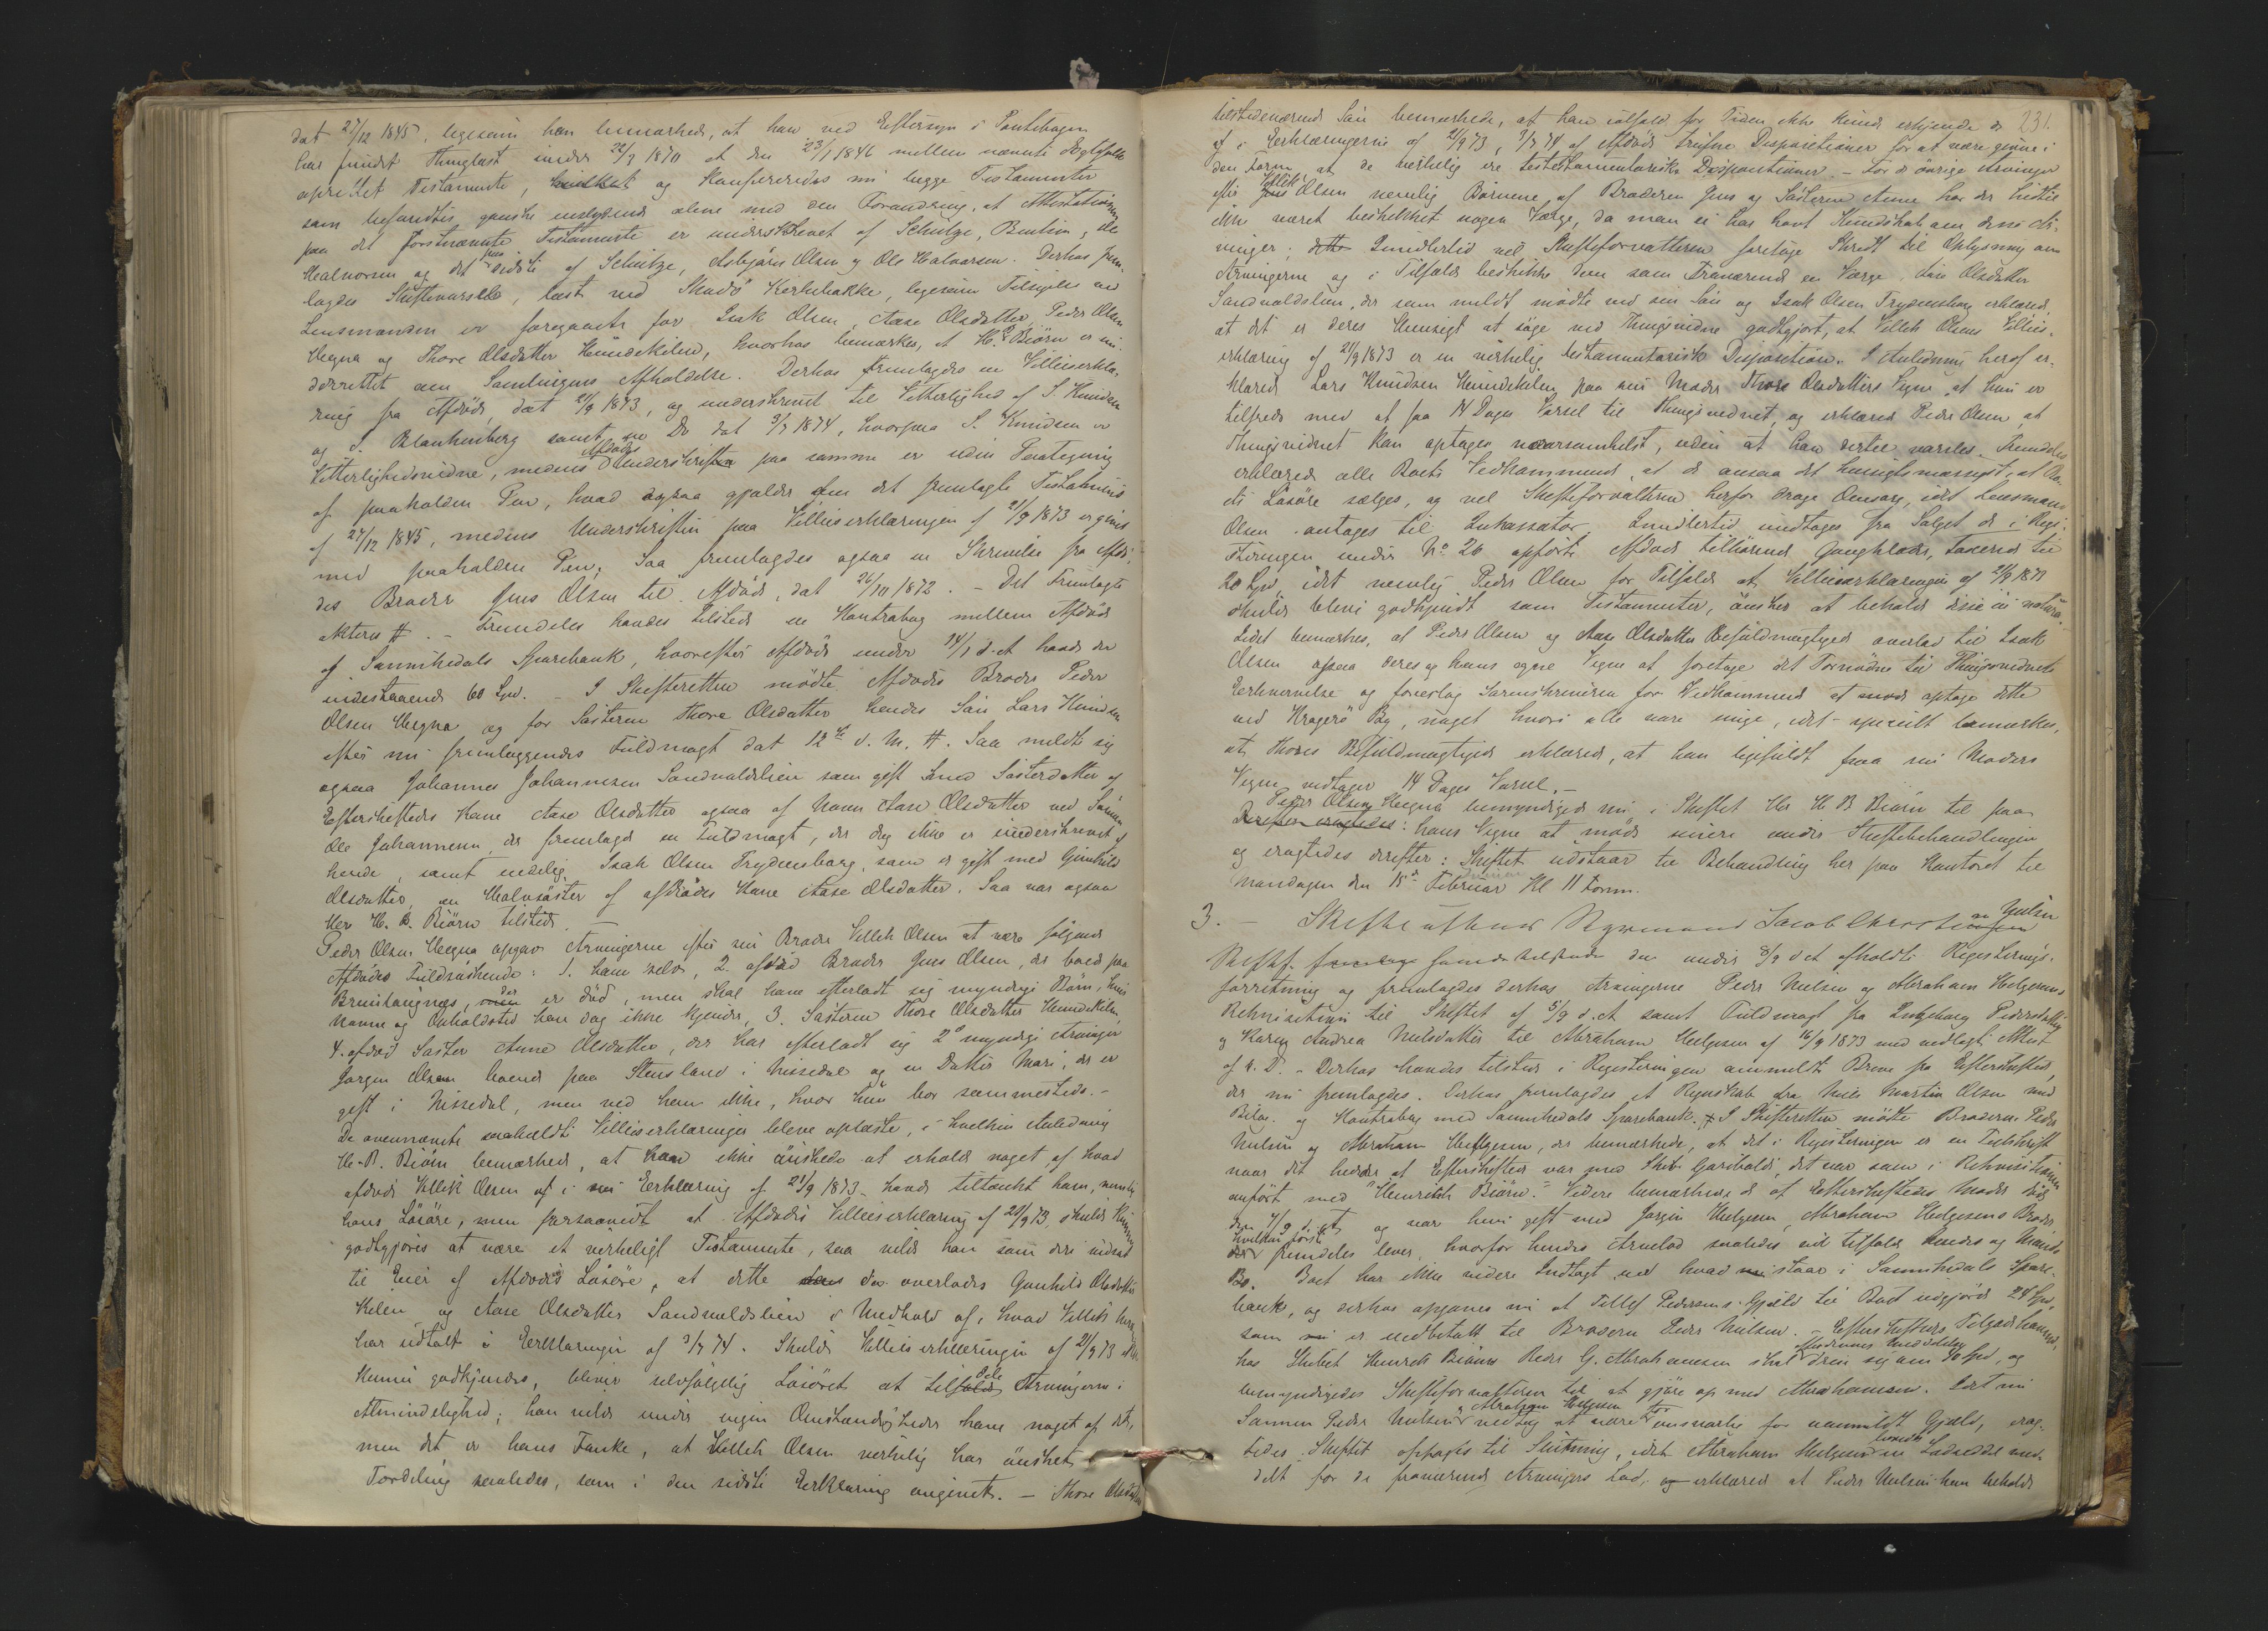 dat 27/12 1845, ligesom han bemærkede, at han ved Eftersyn i Pantebogen
har fundet Thinglæst under 22/3 1870 et den 23/1 1846 mellem nævnte Ægtefolk
oprettet Testamente, og Konfereredes nu begge Testamenter
som befandtes ganske enslydende alene med den Forandring, at Attestationen
paa det førstnævnte Testamente er underskrevet af Schütze, Ole
Halvorsen og det paa sidste af Schütze, Asbjørn Olsen og Ole Halvorsen. Derhos frem-
lagdes Skiftevarsel, læst ved Skaadø Kirkebakke, ligesom Tilsigelse ved
Lensmanden er foregaaet for Isak Olsen, Aase Olsdatter, Peder Olsen
Hegna og Thore Olsdatter Hundekilen, hvorhos bemærkes, at H. B. Biørn er un-
derrettet om Samlingens Afholdelse. Derhos fremlagdes en Villieserklæ-
ring fra Afdøde, dat 21/9 1873, og underskrevet til Vitterlighed af S. Knudsen
og J. Blankenberg samt en Do dat 3/7 1874, hvorpaa S. Knudsen er
Vitterlighedsvidne, medens Afdødes Underskrift paa samme er uden Paategning
af paaholden Pen, hvad ogsaa gjælder om det fremlagte Testamente
af 27/12 1845, medens Underskriften paa Villieserklæringen af 21/9 1873 er given
med paaholden Pen. Saa fremlagdes ogsaa en Skrivelse fra Afdø-
des Broder Jens Olsen til Afdøde, dat 26/10 1872. - Det Fremlagte
akteres #. - Fremdeles havdes tilstede en Kontrabog mellem Afdøde
og Sannikedals Sparebank, hvorefter Afdøde under 14/1 d. A. havde der
indestaaende 60 Spd. - I Skifteretten mødte Afdødes Broder Peder
Olsen Hegna og for Søsteren Thore Olsdatter hendes Søn Lars Knudsen
efter nu fremlæggendes Fuldmagt dat 12te d. M. #. Saa meldte sig
ogsaa Johannes Johannesen Sandvaldslien som gift med Søsterdatter af
Efterskiftedes Kone Aase Olsdatter ogsaa af Navn Aase Olsdatter ved Sønnen
Ole Johannesen, der fremlagde en Fuldmagt, der dog ikke er underskrevet af
hende, samt endelig Isak Olsen Frydensborg, som er gift med Gunhild
Olsdatter, en Halvsøster af afdødes Kone Aase Olsdatter. Saa var ogsaa
Herr H. B. Biørn tilstede.
Peder Olsen Hegna opgav Arvingerne efter sin Broder Vellek Olsen at være følgende
Afdødes Fuldsøskende: 1. ham selv, 2. afdød Broder Jens Olsen, der boede paa
Bruntangnæs, der er død, men skal have efterladt sig myndige Børn, hvis
Navne og Opholdssted han dog ikke kjender, 3. Søsteren Thore Olsdatter Hundekilen,
4. afdød Søster Anne Olsdatter, der har efterladt sig 2de myndige Arvinger
Jørgen Olsen boende paa Stensland i Nissedal og en Datter Mari, der er
gift i Nissedal, men ved han ikke, hvor hun bor sammesteds. -
De ovennævnte saakaldte Villieserklæringer bleve oplæste, i hvilken Anledning
H. B. Biørn bemærkede, at han ikke ønskede at erholde noget af hvad
afdøde Vellek Olsen i sin Erklæring af 21/9 1873 havde tiltænkt ham, nemlig
hans Løsøre, men forsaavidt at Afdødes Villieserklæring af 21/9 73 skulde kunne
godtgjøres at være et virkeligt Testamente, saa vilde han som deri indsat
til Eier af Afdødes Løsøre, at dette da overlodes Gunhild Olsdatter
Kilen og Aase Olsdatter Sandvaldslien i Medhold af, hvad Vellek
har udtalt i Erklæringen af 3/7 74. Skulde Villieserklæringen af 21/9 73 ikke
kunne godkjendes, bliver selvfølgelig Løsøret at tilfalde Arvingerne i
Almindelighed; han vilde under ingen Omstændigheder have noget af det,
men det er hans Tanke, at Vellek Olsen virkelig har ønsket
Fordeling saaledes, som i den sidste Erklæring angivet. - Thore Olsdatters
231.
tilstedeværende Søn bemærkede, at han ialfald for Tiden ikke kunde erkjende de
af i Erklæringerne af 21/9 73, 3/7 74 af Afdøde trufne Dispositioner for at være givne i
den Form, at de virkelig ere testamentariske Dispositioner. - For de øvrige Arvinger
efter Vellek Olsen nemlig Børnene af Broderen Jens og Søsteren Anne har der hidtil
ikke været beskikket nogen Værge, da man ei har havt Kundskab om disse Ar-
vinger; Imidlertid vil Skifteforvalteren foretage Skridt til Oplysning om
Arvingerne og i Tilfælde beskikke dem som fraværende en Værge. Aase Olsdatter
Sandvaldslien, der som meldt mødte ved sin Søn og Isak Olsen Frydensborg erklærede,
at det er deres Hensigt at søge ved Thingsvidne godtgjort, at Vellek Olsens Villies-
erklæring af 21/9 1873 er en virkelig testamentarisk Disposition. I Anledning heraf er-
klærede Lars Knudsen Hundekilen paa sin Moder Thore Olsdatters Vegne, at hun er
tilfreds med at faa 14 Dages Varsel til Thingsvidnet, og erklærede Peder Olsen, at
Thingsvidnet kan optages naarsomhelst, uden at han dertil varsles. Fremdeles
erklærede alle Boets Vedkommende, at de ansaa det hensigtsmæssigst, at Bo-
ets Løsøre sælges, og vil Skifteforvalteren herfor drage Omsorg, idet Lensmand
Olsen antages til Inkassator. Imidlertid undtages fra Salget de i Regi-
streringen under No 26 opførte Afdøde tilhørende Gangklæder, taxerede til
20 Spd idet nemlig Peder Olsen for Tilfælde at Villieserklæringen af 21/9 1873
skulde blive godkjendt som Testamente, ønsker at beholde disse in natura.
Det bemærkes, at Peder Olsen og Aase Olsdatters Befuldmægtigede overlod til Isak
Olsen ogsaa deres og hans egne Vegne at foretage det Fornødne til Thingsvidnets
Erhvervelse og foreslog Sorenskriveren for Vedkommende at optage dette
ved Kragerø By, noget hvori alle vare enige, idet specielt bemærkes,
at Thores Befuldmægtigede erklærede, at han ligefuldt paa sin Moders
Vegne vedtager 14 Dages Varsel. -
Peder Olsen Hegna bemyndigede nu i Skiftet Hr H B Biørn til paa
hans Vegne at møde senere under Skiftebehandlingen
og eragtedes derefter: Skiftet udstaar til Behandling her paa Kontoret til
Mandagen den 15de Februar Kl 11 Form.
3. - Skifte efter Styrmand Jacob Nielsen
Skiftef. den under 8/9 d. A. afholdte Registrerings-
forretning og fremlagdes derhos Arvingerne Peder Nielsen og Abraham Helgesens
Rekvisition til Skiftet af 5/9 d. A. samt Fuldmagt fra Ingeborg Pedersdatter
og Karen Andrea Nielsdatter til Abraham Helgesen af 16/9 1873 med vedlagt Attest
af s. D. - Derhos havdes tilstede i Registreringen anmeldte Breve fra Efterskiftede,
der nu fremlagdes. Derhos fremlagdes et Regnskab fra Niels Martin Olsen med
Bilag og Kontrabog med Sannikedals Sparebank. # I Skifteretten mødte Brødrene Peder
Nielsen og Abraham Helgesen, der bemærkede, at det i Registreringen er en Feilskrift
naar det hedder, at Efterskiftede var med Skib Garibaldi, det var som i Rekvisitionen
anført med "Henrich Biørn". Videre bemærkede de at Efterskiftedes Moder døde
den 7/9 d. A. og var hun gift med Jørgen Helgesen, Abraham Helgesens Broder,
hvilken først fremdeles lever, hvorfor hendes Arvelod saaledes vil tilfalde hendes og Mands
Bo. Boet har ikke videre Indtægt end hvad staar i Sannikedals Spare-
bank, og derhos opgaves nu at Tellef Pedersens Gjæld til Boet udgjorde 24 Spd,
som er indbetalt til Broderen Peder Nielsen. - Efterskiftedes Tilgodehavende
hos Skibet Henrik Biørns Reder G. Abrahamsen skal dreie sig om 40 Spd, og
bemyndigedes Skifteforvalteren til at gjøre op med Abrahamsen. Idet nu
Sønnen Peder Nielsen & Abraham Helgesen vedtog at være ansvarlig for anmeldt Gjæld, erag-
tedes Skiftet optaget til Slutning, idet Abraham Helgesen en Lodseddel med-
delt for de fraværende Arvingers Lod, og erklærede at Peder Nielsen kan beholde